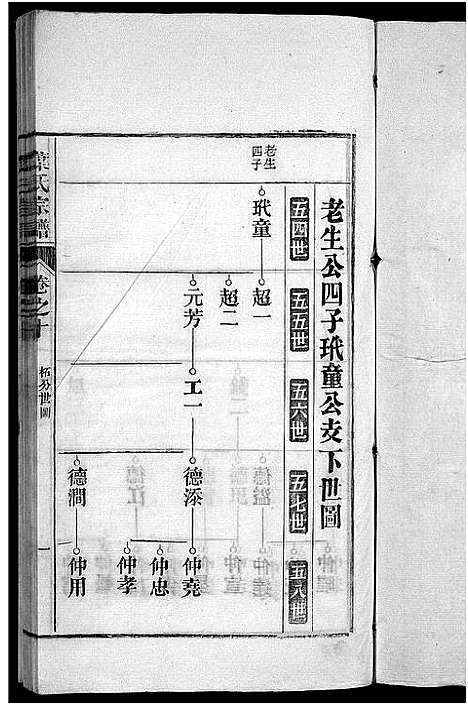 老生公四子玳童公支下世圖
五四世
五五世
五六世
五七世
五八世
老生
四子
玳童
超一
超二
元芳
工一
德添
德澗
仲堯
仲忠
仲孝
仲用
氏宗譜
卷之十
柘分世圖
一